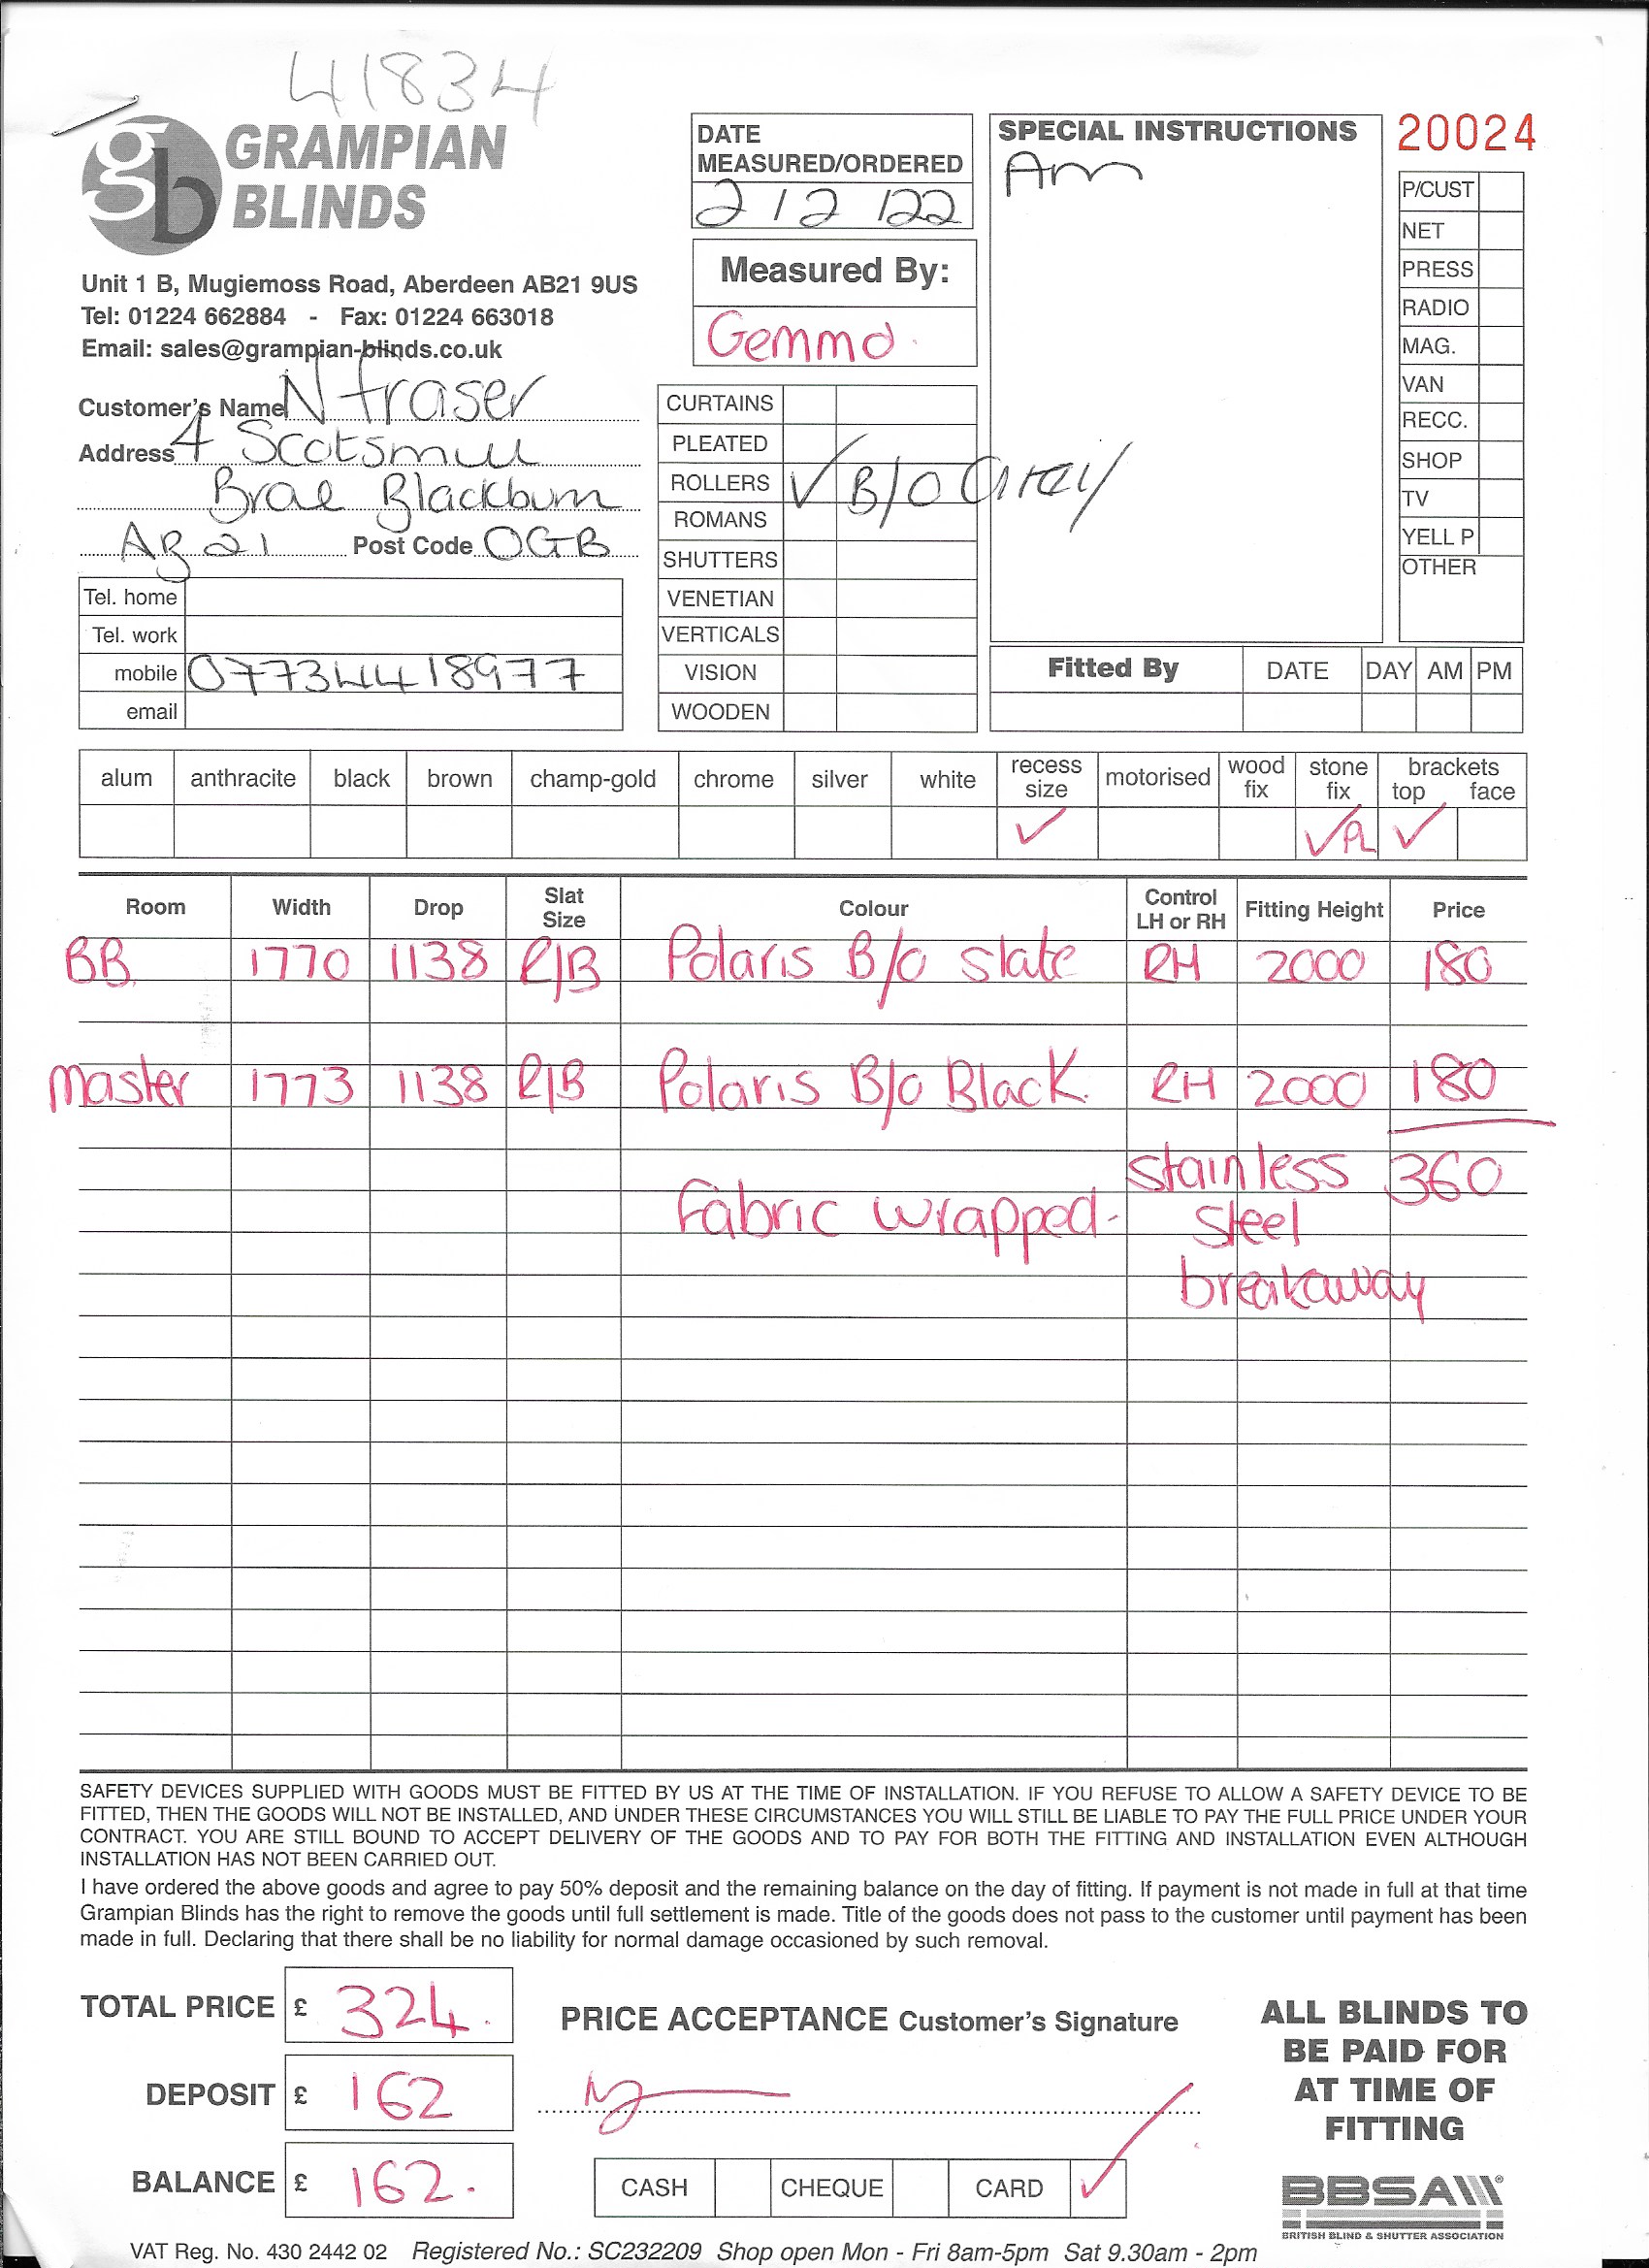 41834
gb GRAMPIAN BLINDS
Unit 1 B, Mugiemoss Road, Aberdeen AB21 9US
Tel: 01224 662884 - Fax: 01224 663018
Email: sales@grampian-blinds.co.uk
Customer's Name N Fraser
Address 4 Scotsmill
Brae Blackburn
AB21 Post Code 0GB
Tel. home
Tel. work
mobile 07734418977
email
DATE
MEASURED/ORDERED
2/2/22
Measured By:
Gemma
CURTAINS
PLEATED
ROLLERS ✓ B/O Gray
ROMANS
SHUTTERS
VENETIAN
VERTICALS
VISION
WOODEN
SPECIAL INSTRUCTIONS
Am
20024
P/CUST
NET
PRESS
RADIO
MAG.
VAN
RECC.
SHOP
TV
YELL P
OTHER
Fitted By DATE DAY AM PM
alum anthracite black brown champ-gold chrome silver white recess size motorised wood fix stone fix brackets top face
✓ ✓ PL ✓
Room Width Drop Slat Size Colour Control LH or RH Fitting Height Price
BB. 1770 1138 R/B Polaris B/O Slate RH 2000 180
Master 1773 1138 R/B Polaris B/O Black. RH 2000 180
stainless 360
Fabric wrapped. steel
breakaway
SAFETY DEVICES SUPPLIED WITH GOODS MUST BE FITTED BY US AT THE TIME OF INSTALLATION. IF YOU REFUSE TO ALLOW A SAFETY DEVICE TO BE
FITTED, THEN THE GOODS WILL NOT BE INSTALLED, AND UNDER THESE CIRCUMSTANCES YOU WILL STILL BE LIABLE TO PAY THE FULL PRICE UNDER YOUR
CONTRACT. YOU ARE STILL BOUND TO ACCEPT DELIVERY OF THE GOODS AND TO PAY FOR BOTH THE FITTING AND INSTALLATION EVEN ALTHOUGH
INSTALLATION HAS NOT BEEN CARRIED OUT.
I have ordered the above goods and agree to pay 50% deposit and the remaining balance on the day of fitting. If payment is not made in full at that time
Grampian Blinds has the right to remove the goods until full settlement is made. Title of the goods does not pass to the customer until payment has been
made in full. Declaring that there shall be no liability for normal damage occasioned by such removal.
TOTAL PRICE £ 324.
DEPOSIT £ 162
BALANCE £ 162.
PRICE ACCEPTANCE Customer's Signature
CASH CHEQUE CARD ✓
ALL BLINDS TO
BE PAID FOR
AT TIME OF
FITTING
BBSA
BRITISH BLIND & SHUTTER ASSOCIATION
VAT Reg. No. 430 2442 02 Registered No.: SC232209 Shop open Mon - Fri 8am-5pm Sat 9.30am - 2pm